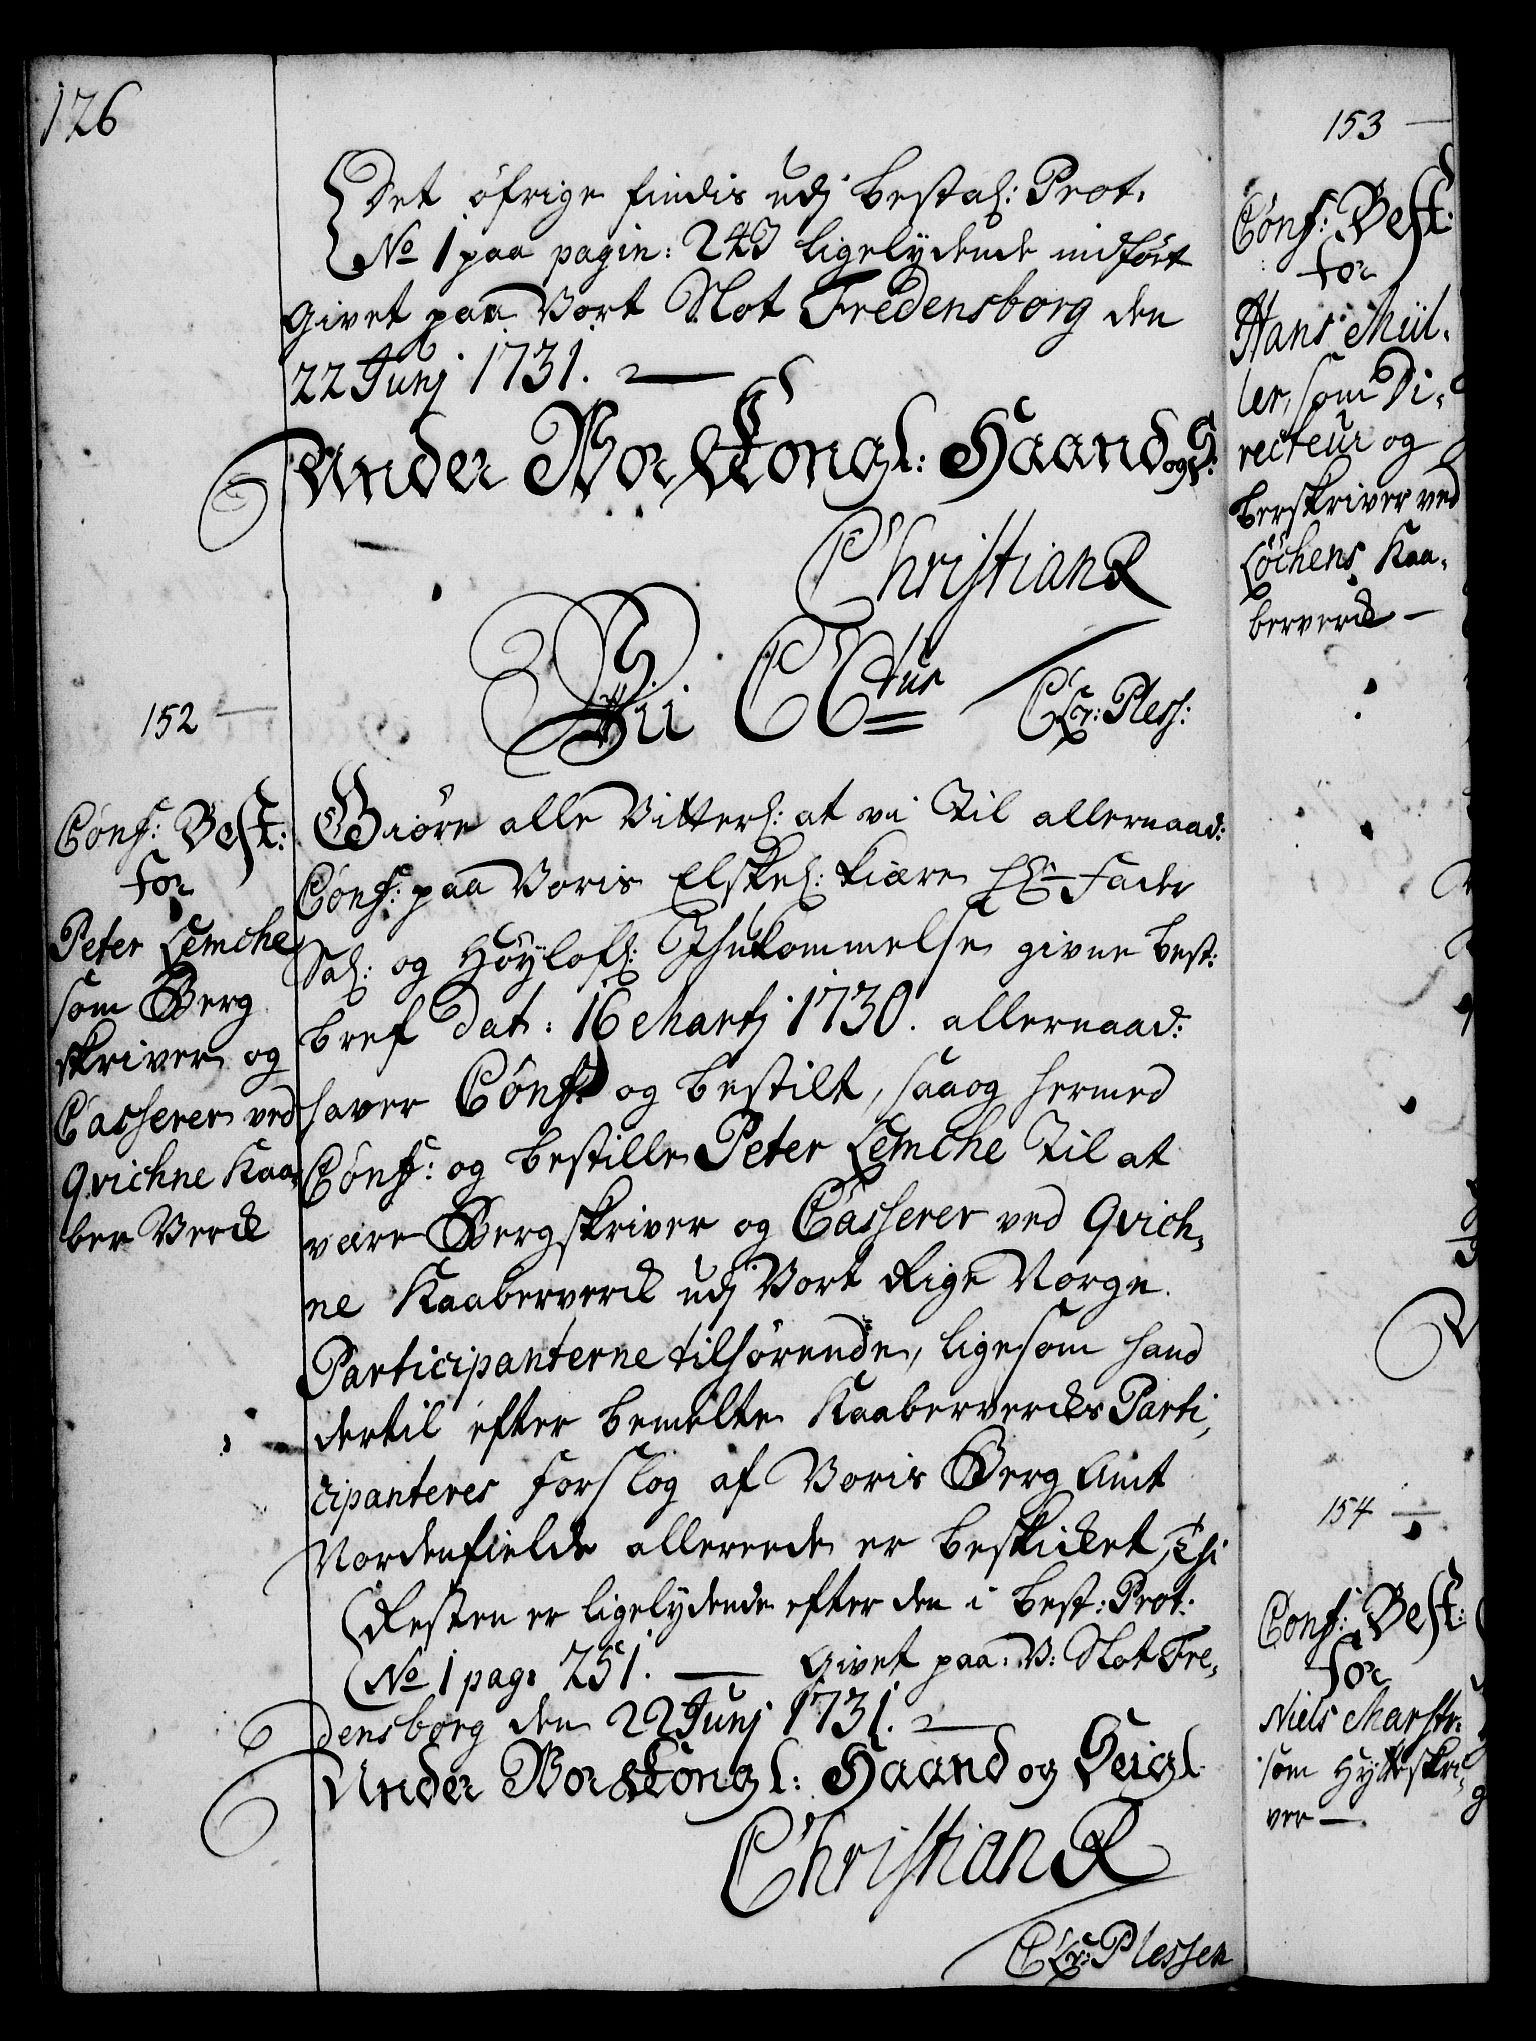 126
Det öfrige findis udj bestal: Prot.
No 1 paa pagin: 243 ligelydende indført
Givet paa Vort Slot Fredensborg den
22 Junj 1731.
Under Vor Kongl: Haand og S:
Christian R
Vii CC6tus
CAr: Pless:
152
Conf: Best:
for
Peter Lemche
som Berg
skriver og
Casserer ved
Qvichne Kaa-
ber Verck
Giöre alle Vitterl: at vi Til allernaad:
Conf: paa Voris Elskel: kiære Hr Fader
Sal: og Höylofl: Ihukommelse givne best:
bref dat: 16 Martj 1730. allernaad:
haver Conf: og bestilt, saaog hermed
Conf: og bestille Peter Lemche Til at
være Bergskriver og Casserer ved Qvich-
ne Kaaberverck udj Vort Rige Norge
Participanterne tilhörende, ligesom hand
dertil efter bemelte Kaaberverckes Parti-
cipanteres forslog af Voris Berg Amt
Nordenfields allereede er beskicket, Thi
Resten er ligelydende efter den i best: Prot:
No 1 pag: 251. Givet paa V: Slot Fre-
densborg den 22 Junj 1731.
Under Vor Kongl: Haand og Seigl
Christian R
CAr: Plessen
153
Conf: Best:
for
Hans Mül-
ler, som Di-
recteur og
berskriver ved
Löchens Kaa-
berverck
154
Conf: Best:
for
Niels Marstr:
som Hytteskri-
ver